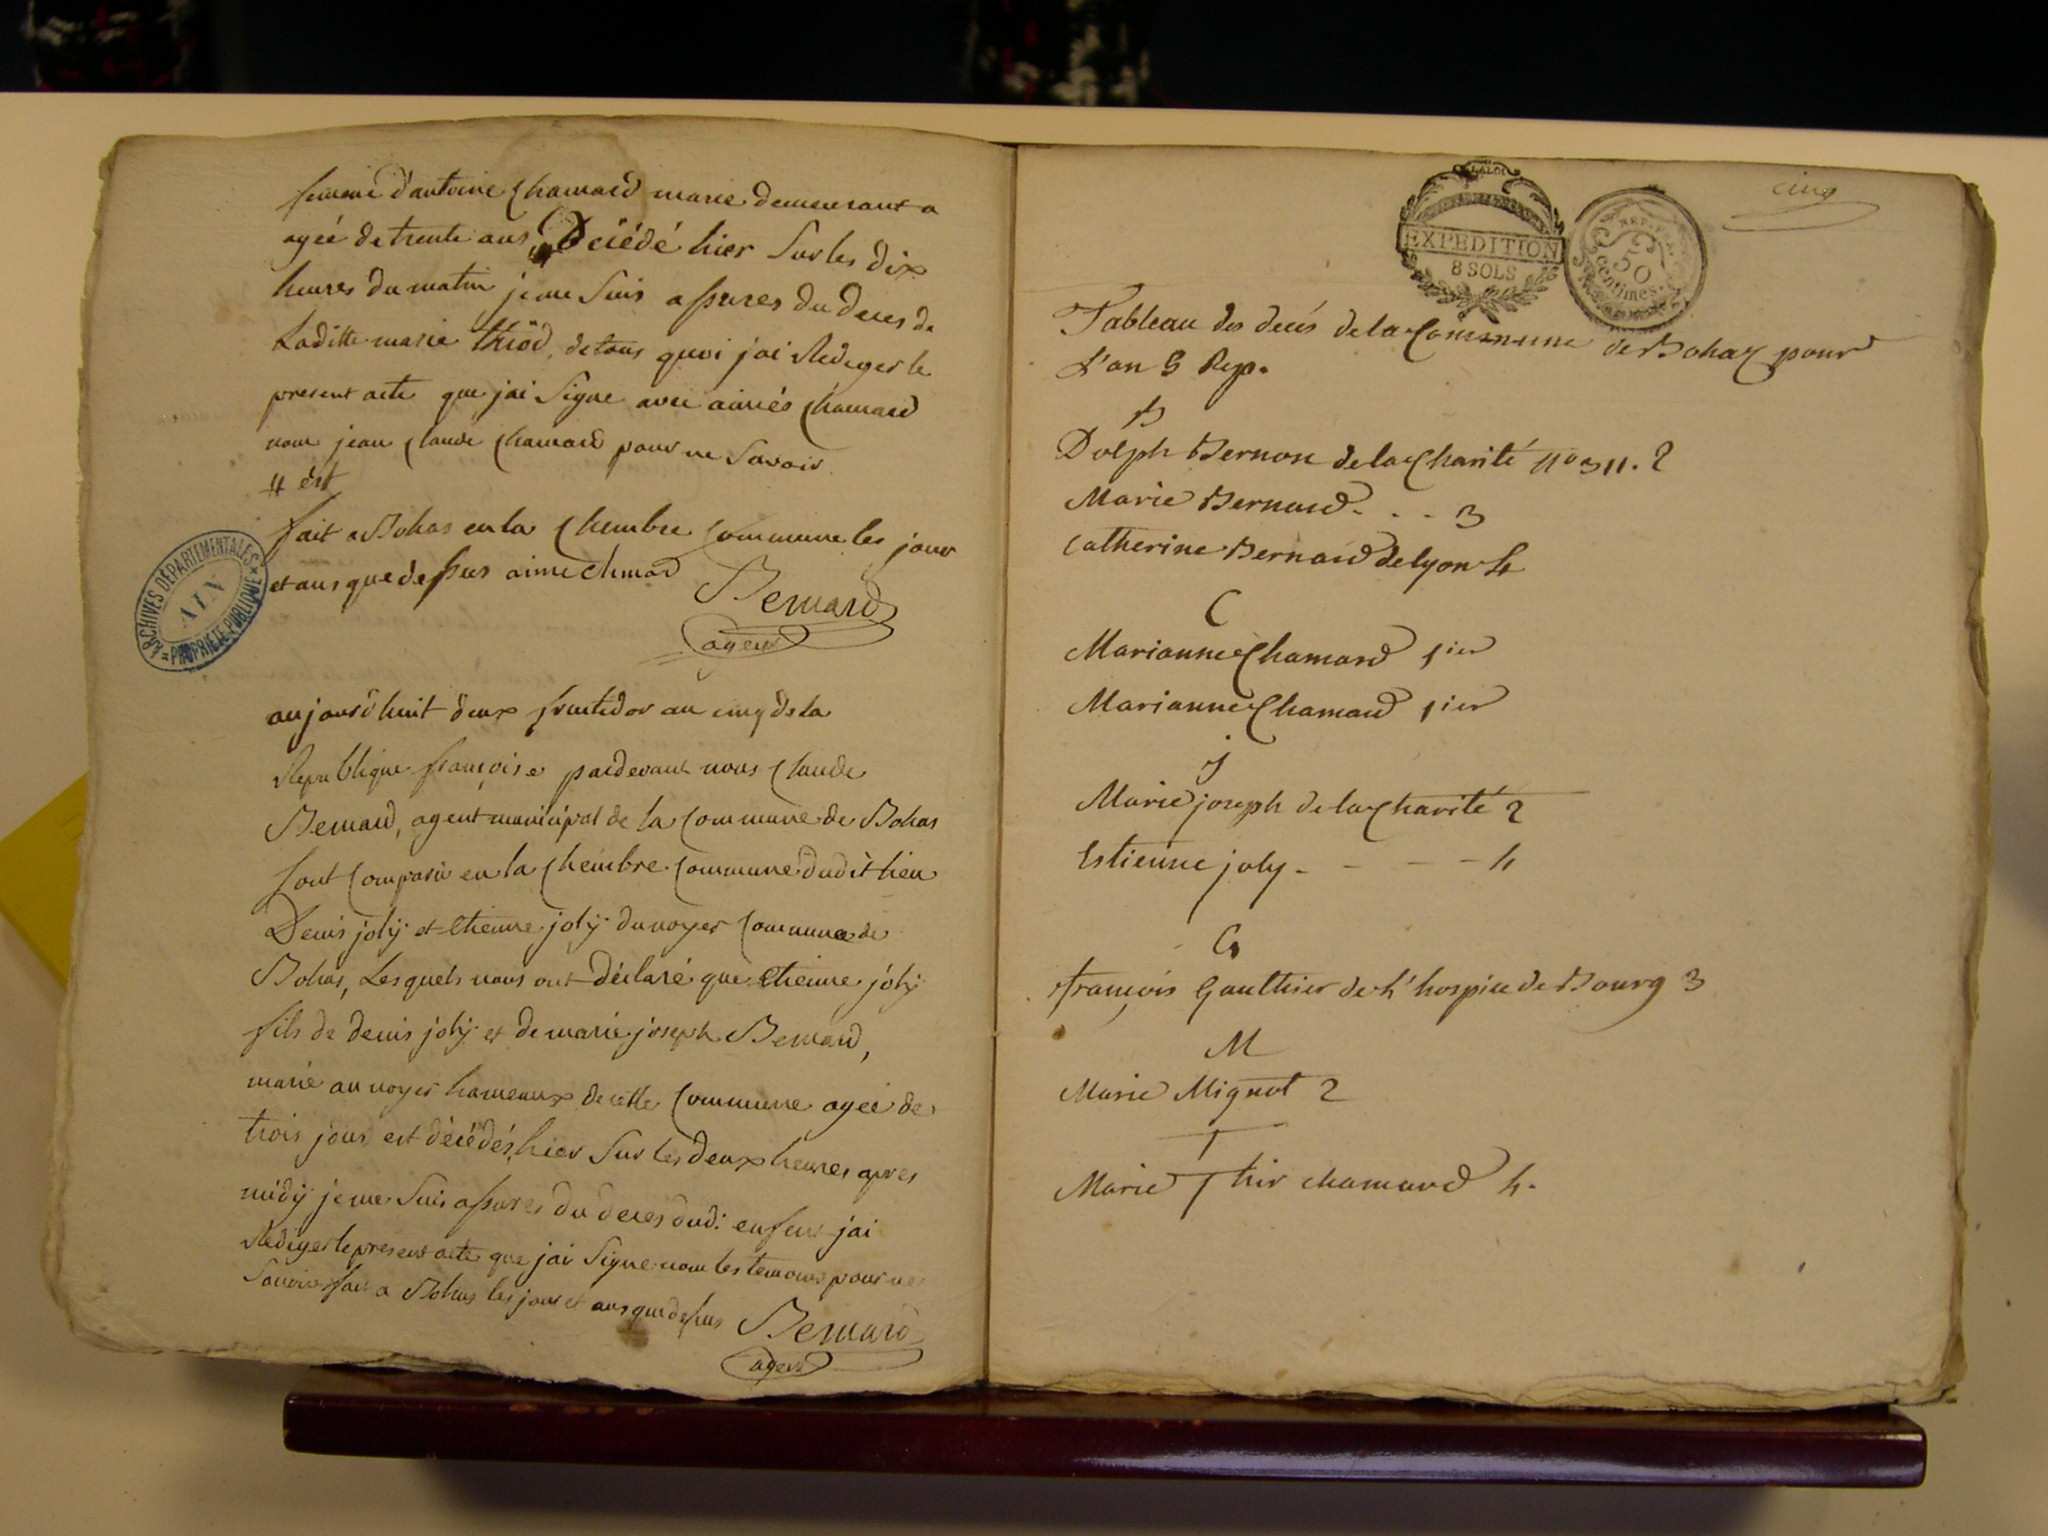 femme d'antoine Chamard marié demeurant a
agéé de trente ans Décédé hier sur les dix
heures du matin je me suis assures du deces de
Laditte marie thiod, de tous quoi j'ai Rediger le
present acte que j'ai signe avec aimés Chamard
nom jean Claude Chamard pour ne savoir
# est
fait a Bohas en la Chembre Commune les jour
et ans que dessus aimé chmard
Bernard
agent
ARCHIVES DÉPARTEMENTALES
AIN
PROPRIÉTÉ PUBLIQUE
aujourd'huit deux fruitidor an cinq de la
Republique françoise pardevant nous Claude
Bernard, agent municipal de la Commune de Bohas
sont Comparu en la Chembre Commune dudit lieu
Denis jolÿ et Etienne jolÿ du noyer Commune de
Bohas, Lesquels nous ont déclaré que Etienne jolÿ
fils de denis jolÿ et de marie joseph Bernard,
marié au noyer hameaux de cette Commune ageé de
trois jours est décédés, hier sur les deux heures apres
midÿ je me suis assures du deces dud: enfent j'ai
Rediger le present acte que j'ai signe nom les temoins pour ne
savoir fait a Bohas les jour et ans que dessus
Bernard
agent
cinq
LA LOI
EXPEDITION
8 SOLS
REP. FRA.
50
centimes.
Tableau des decés de la Commune de Bohas pour
L'an 5 Rep.
B
Dolph Bernon de la Charité n° 311. 2
Marie Bernard - - - 3
Catherine Bernard de lyon 4
C
Marianne Chamard 1ier
Marianne Chamard 1ier
J
Marie joseph de la Charité 2
Estienne joly - - - - 4
G
françois Gaulthier de l'hospice de Bourg 3
M
Marie Mignot 2
T
Marie Thir chamard 4.